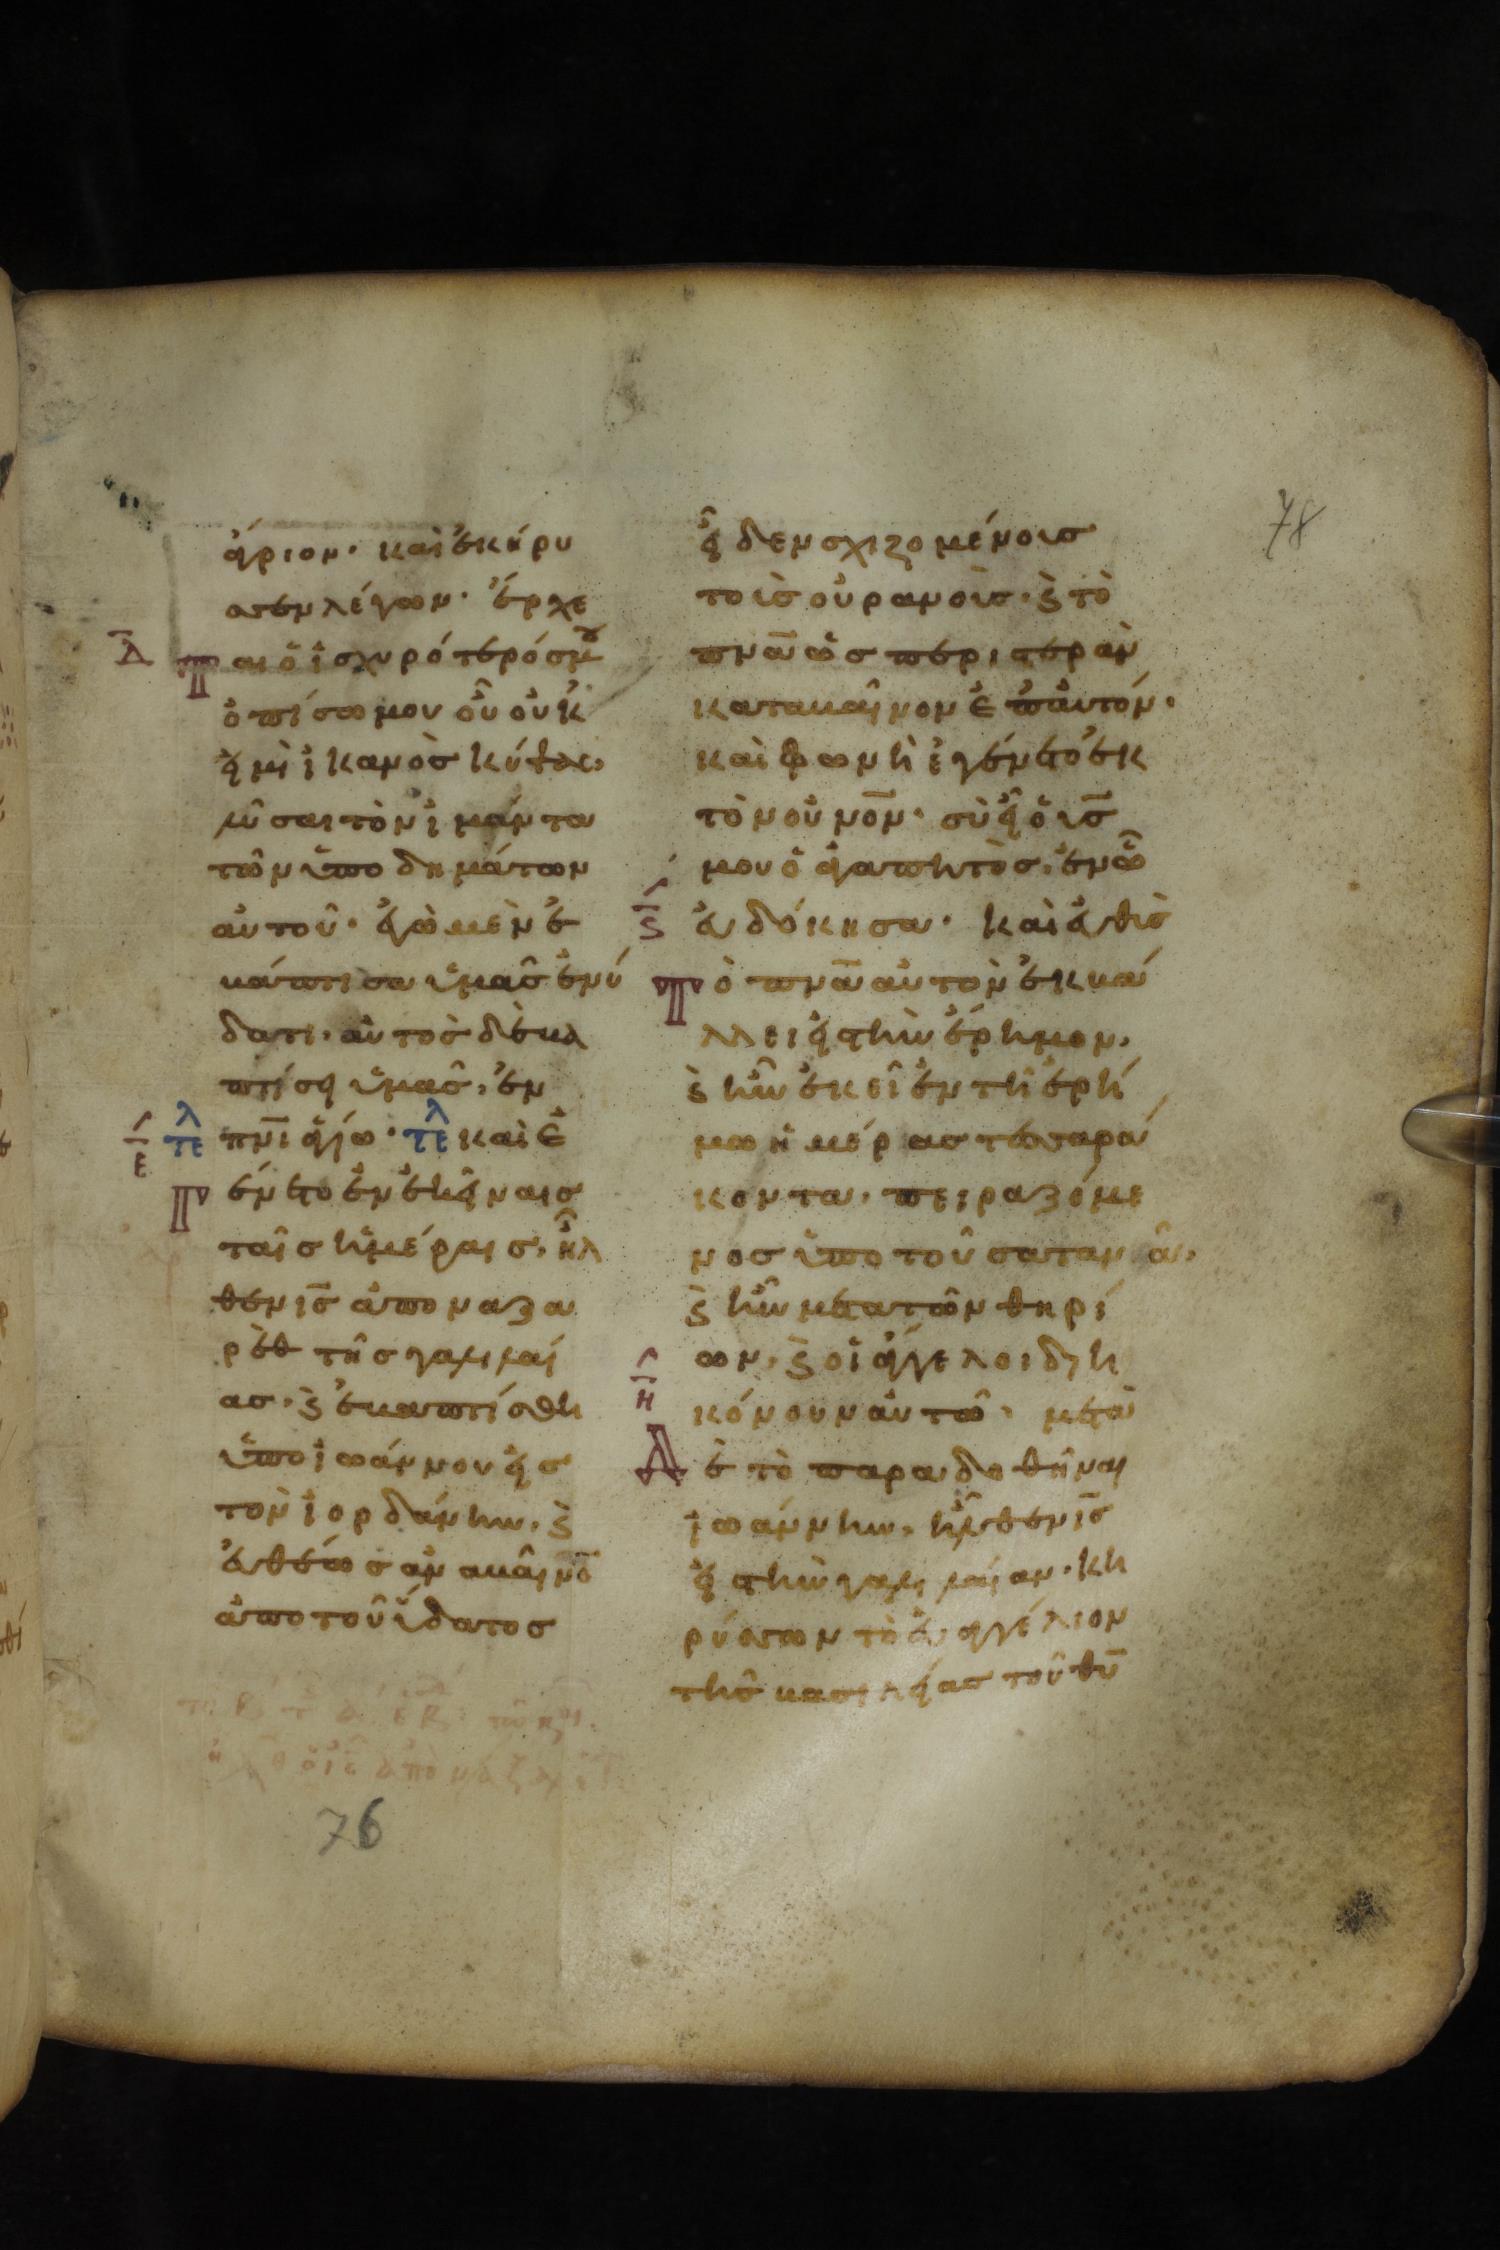 ἄγριον· καὶ ἐκήρυ
σσεν λέγων· ἔρχε
Δ
ται ὁ ἰσχυρότερός μου
ὀπίσω μου οὗ οὐκ
εἰμὶ ἱκανὸς κύψας
λῦσαι τὸν ἱμάντα
τῶν ὑποδημάτων
αὐτοῦ· ἐγὼ μὲν ἐ
βάπτισα ὑμᾶς ἐν ὕ
δατι· αὐτὸς δὲ βα
πτίσει ὑμᾶς, ἐν
Ε τελ πνι ἁγίω· τελ καὶ ἐ
Γένετο ἐν ἐκείναις
ταῖς ἡμέραις, ἦλ
θεν ις ἀπο ναζα
ρὲθ τῆς γαλιλαί
ας· ϗ ἐβαπτίσθη
ὑπο ἰωάννου εἰς
τὸν ἰορδάνην, ϗ
εὐθέως ἀναβαίνο
ἀπο τοῦ ὕδατος
76
78
εἶδεν σχιζομένους
τοὺς οὐρανοὺς· ϗ τὸ
πνα ὡς περιστερὰν
καταβαῖνον ἐπ αὐτόν·
καὶ φωνὴ ἐγένετο ἐκ
τὸν οὐνον· σὺ εἶ ὁ υς
μου ὁ ἀγαπητὸς, ἐν ὧ
Ϛ εὐδόκησα· καὶ εὐθὺς
Τὸ πνα αὐτὸν ἐκβά
λλει εἰς τὴν ἔρημον,
ϗ ἦν ἐκεῖ ἐν τῆ ἐρή
μω ἡμέρας τεσσαρά
κοντα, πειραζόμε
νος ὑπο τοῦ σατανᾶ,
ϗ ἦν μετα τῶν θηρί
ων, ϗ οἱ ἄγγελοι διη
Η
κόνουν αὐτῶ· μετὰ
Δὲ τὸ παραδοθῆναι
ἰωάννην, ἦλθεν ις
εἰς τὴν γαλιλαίαν· κη
ρύσσων τὸ εὐαγγέλιον
τῆς βασιλείας τοῦ θυ